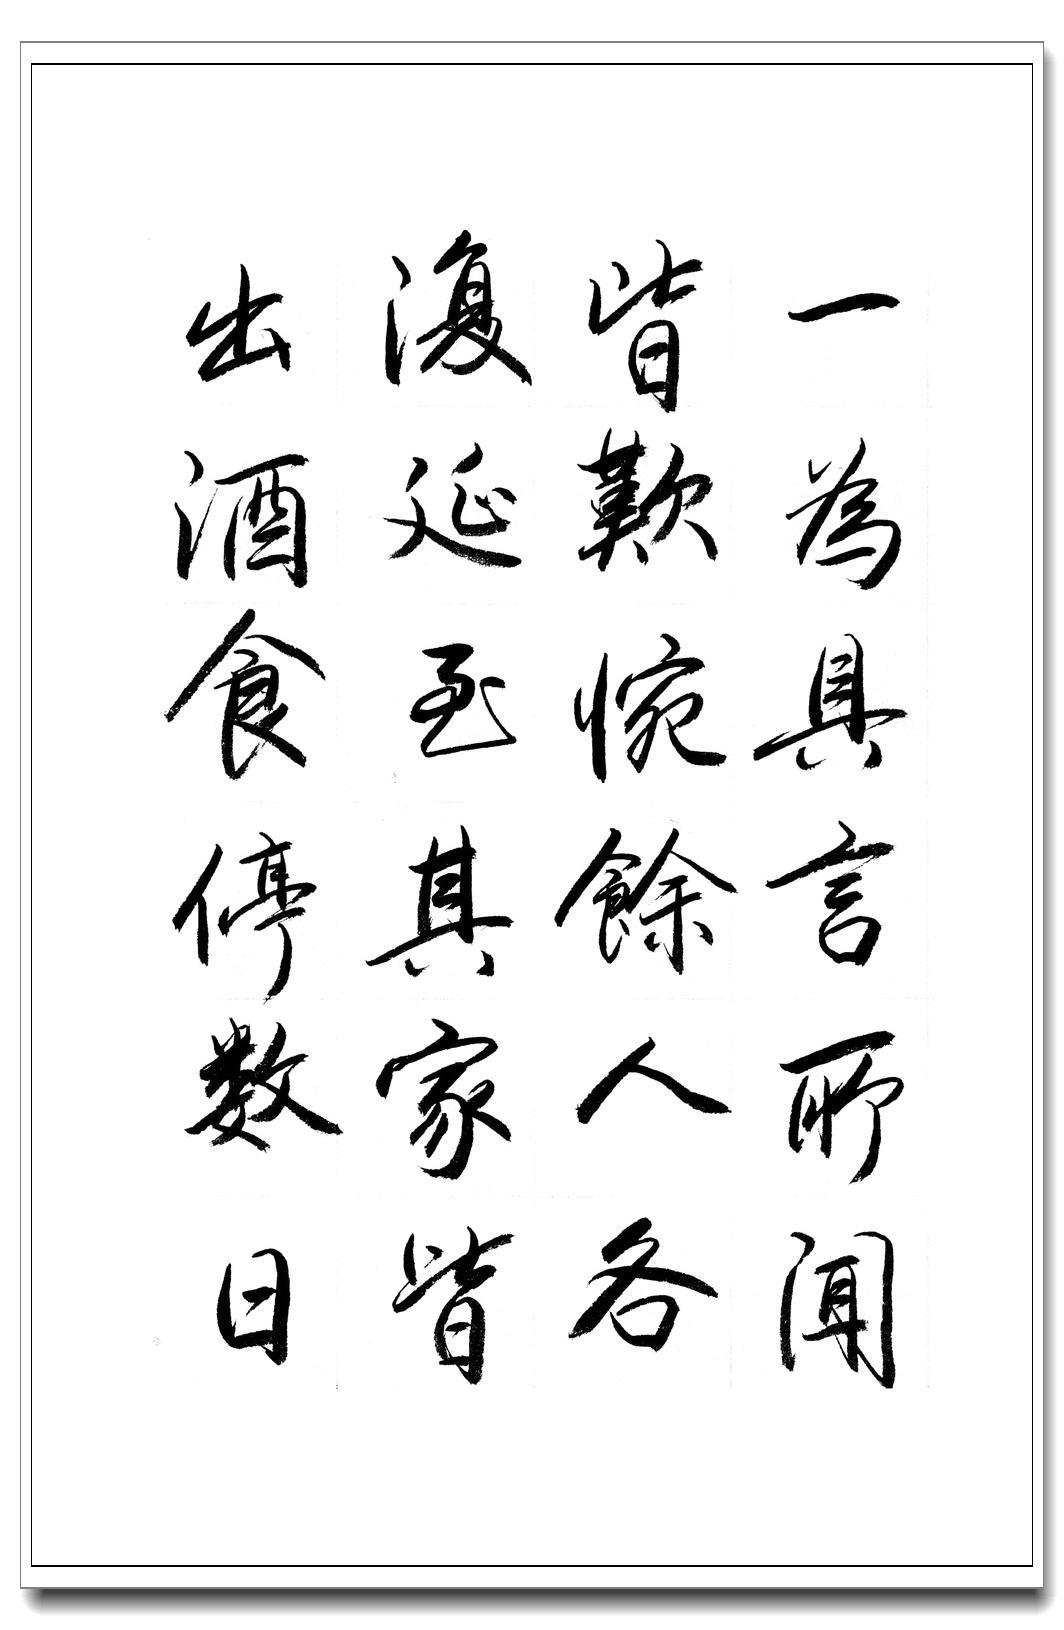 一為具言所闻
皆歎惋餘人各
復延至其家皆
出酒食停数日